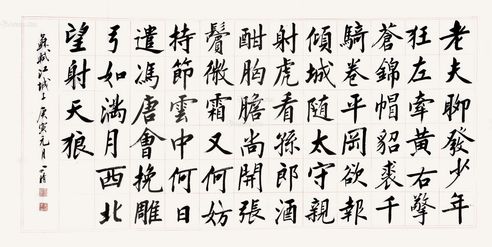 老夫聊發少年
狂左牽黃右擎
蒼錦帽貂裘千
騎卷平岡欲報
傾城隨太守親
射虎看孫郎酒
酣胸膽尚開張
鬢微霜又何妨
持節雲中何日
遣馮唐會挽雕
弓如滿月西北
望射天狼
蘇軾江城子 庚寅元月